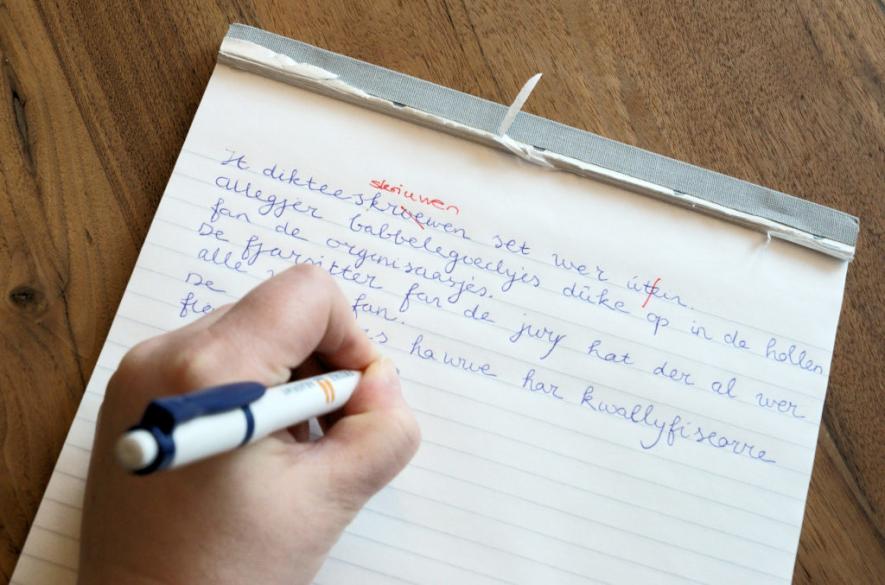 skriuwen
It dikteeskroewen set wer útfen
allegjer babbelegoedsjes dûke op in de hollen
fan de organisaasjes.
De fjarsitter fan de jury hat der al wer
alle fan.
De hawwe har kwallyfisearre